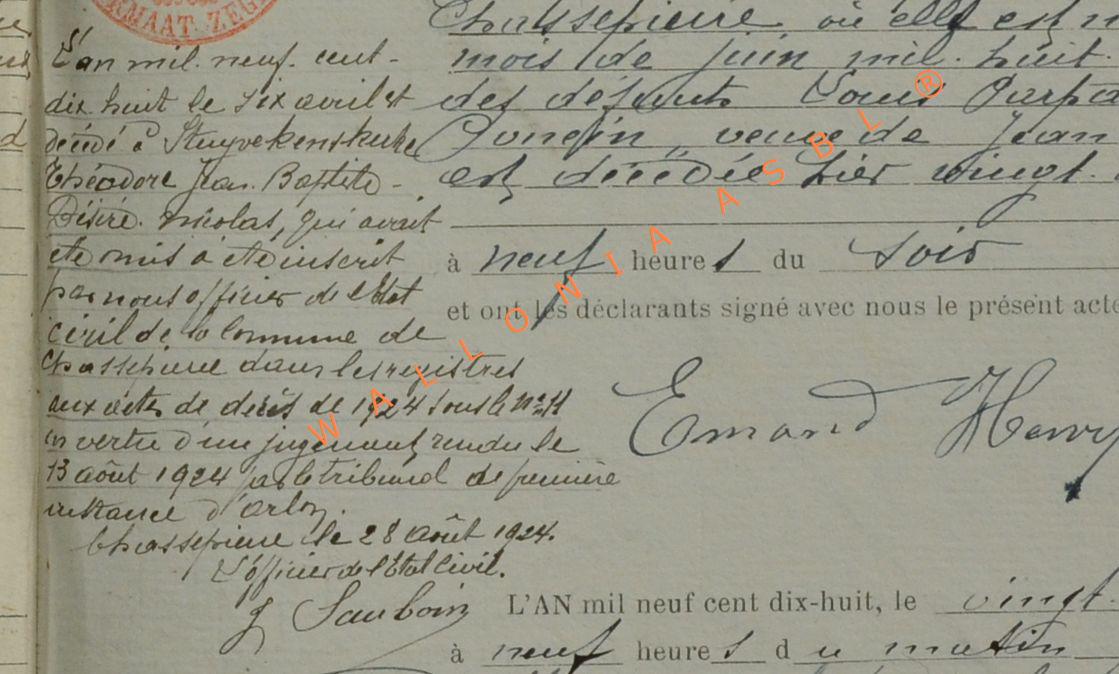 RMAAT. ZEG
L'an mil. neuf. cent -
dix huit le six avril est
décédé à Stuyvekenskerke
Théodore Jean. Baptiste -
Désiré. Nicolas, qui avait
été omis à être inscrit
par nous officier de l'Etat
civil de la Commune de
Chassepierre dans les registres
aux actes de décès de 1924 sous le N° 11
en vertu d'un jugement rendu le
13 août 1924 par le tribunal de première
instance d'Arlon.
Chassepierre le 28 Août 1924.
L'officier de l'Etat Civil.
J Sauboin
Chassepierre où elle est n
mois de juin mil. huit
des défunts Louis
Poncin, veuve de Jean
est décédée hier vingt.
à neuf heures du soir
et ont les déclarants signé avec nous le présent acte
Emond Henry
L'AN mil neuf cent dix-huit, le vingt
à neuf heures du matin
WALLONIA ASBL ®